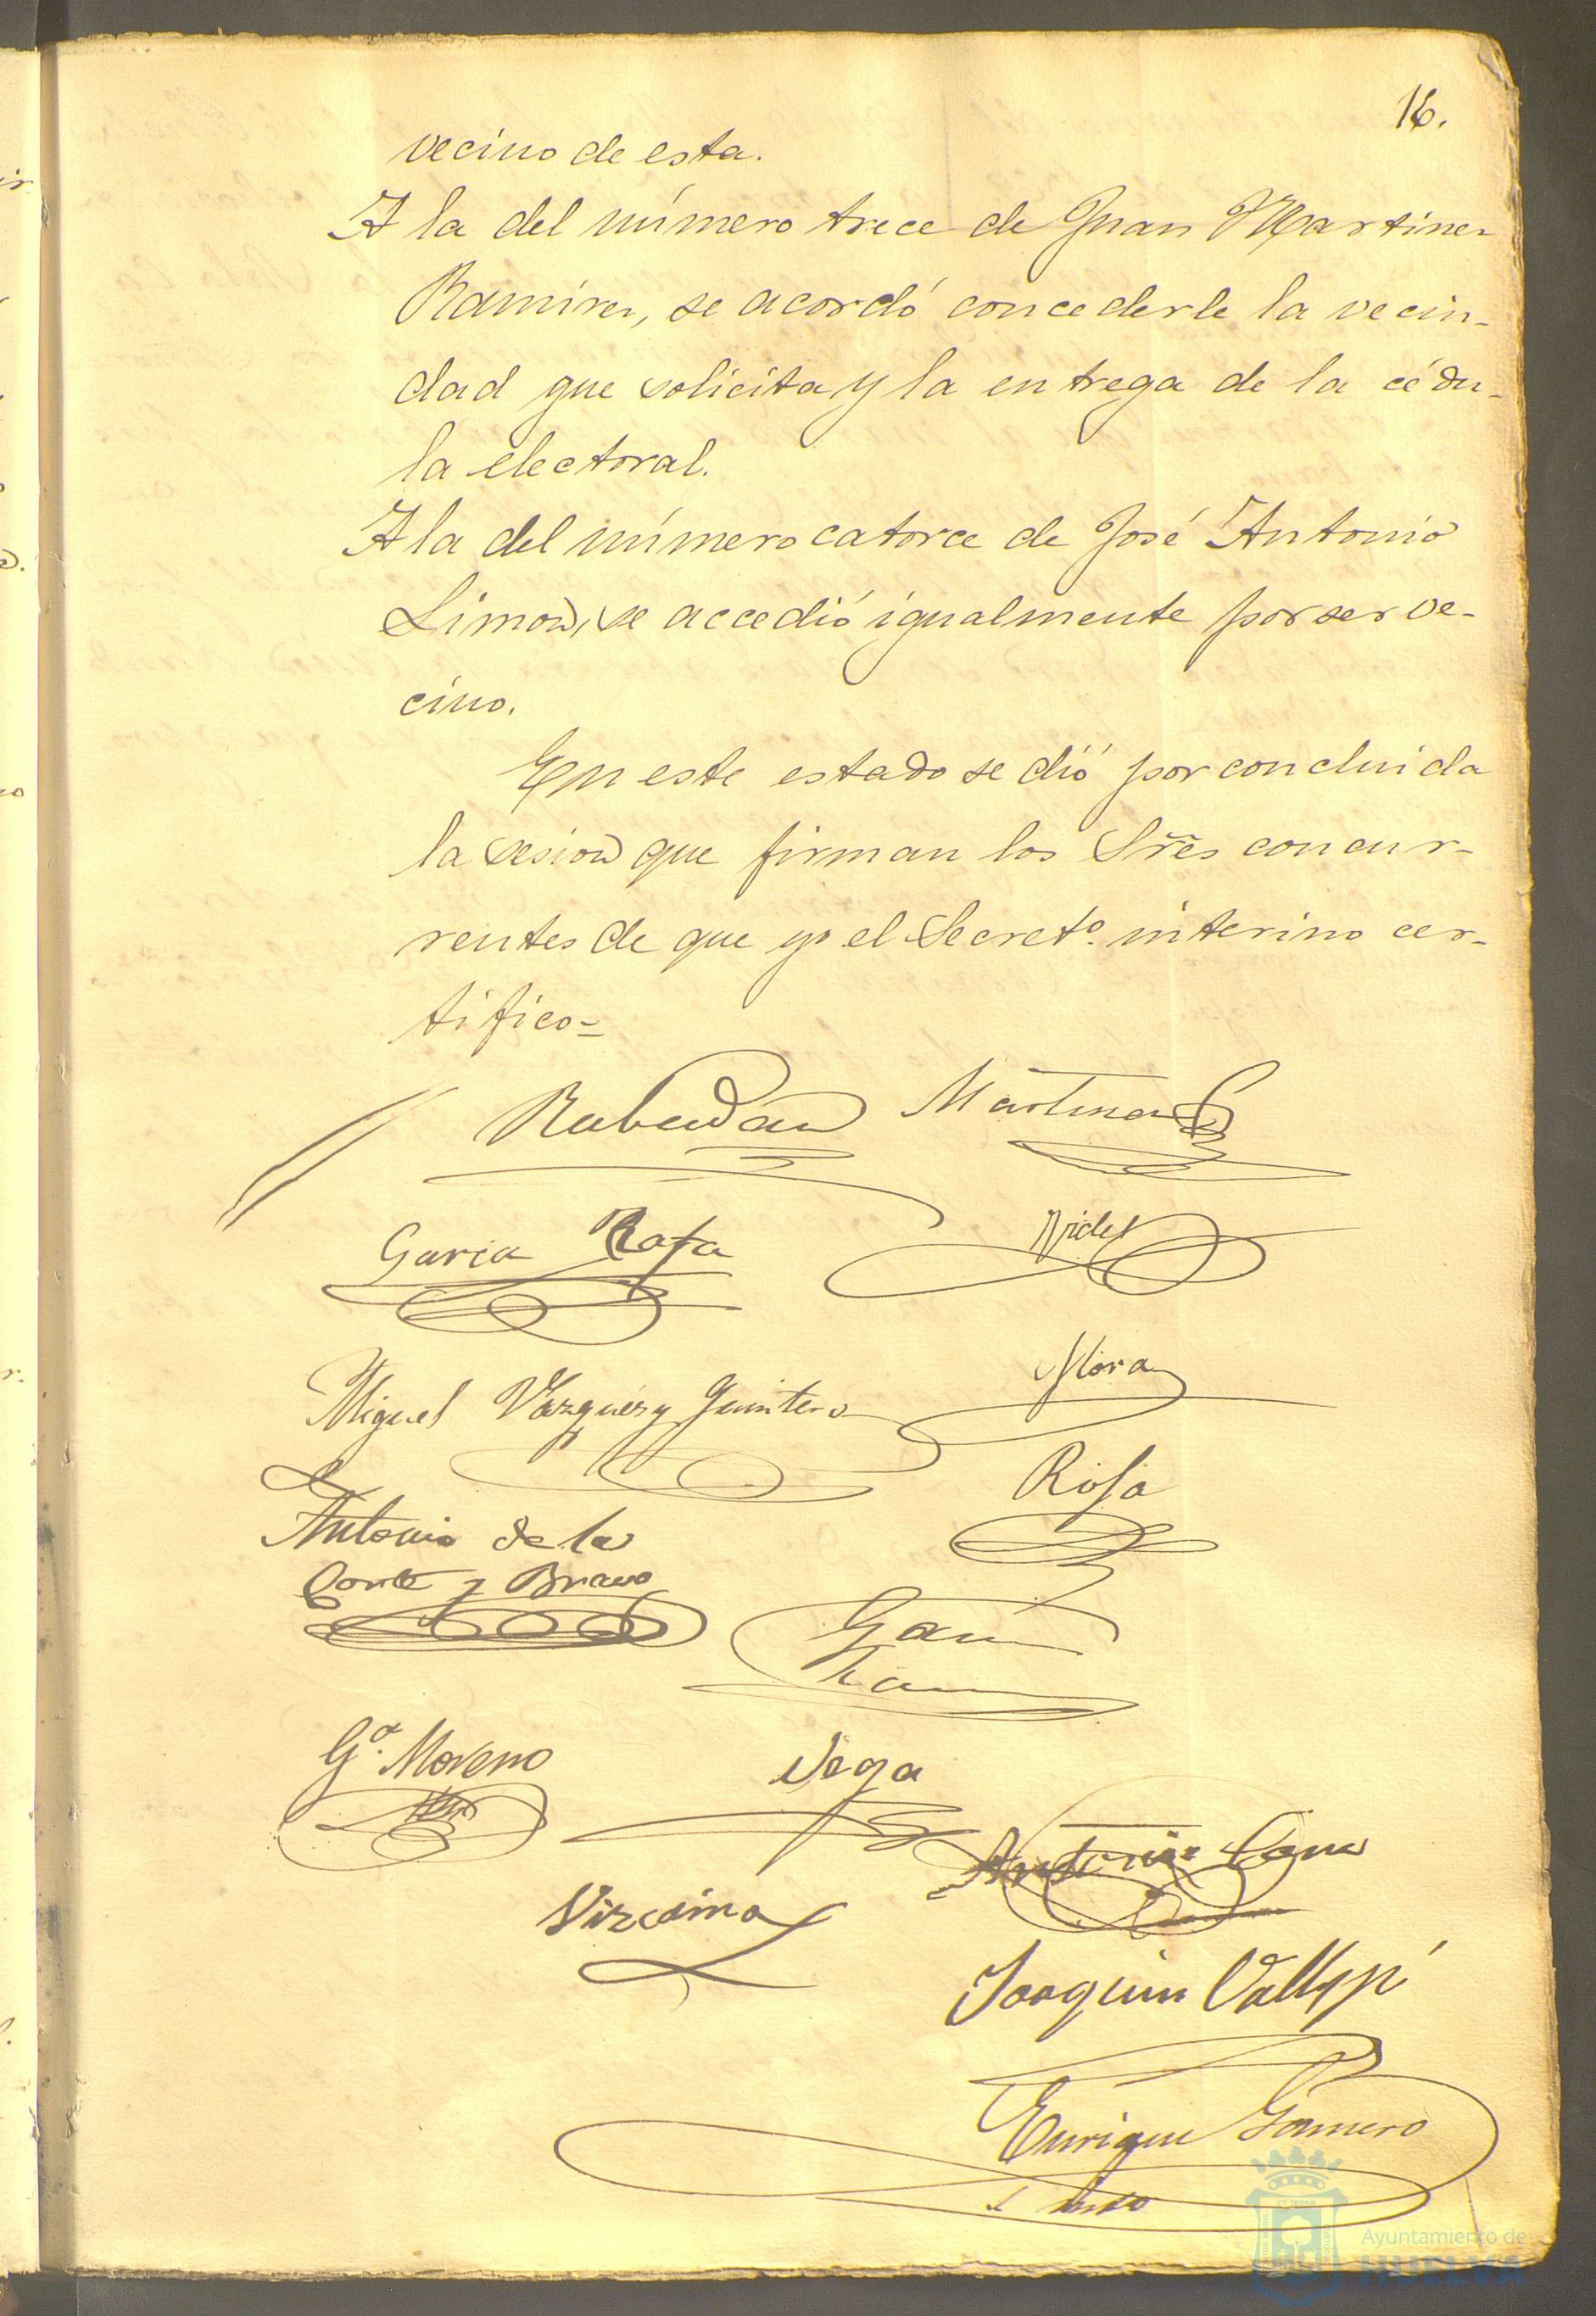 16.
vecino de esta.
A la del número trece de Juan Martinez
Ramirez, se acordó concederle la vecin-
dad que solicita y la entrega de la cédu-
la electoral.
A la del número catorce de José Antonio
Limon, se accedió igualmente por ser ve-
cino.
En este estado se dió por concluida
la sesion que firman los Sres concur-
rentes de que yo el Secret.º interino cer-
tifico=
Rabadán Martinez
Garcia Rafa
Miguel Vázquez y Quintero
Mora
Rosa
Antonio de la
Corte y Bravo
Garcia
Gª. Moreno
Vega
Antonio
Vizcaino
Joaquin Vallespi
Enrique
Ayuntamiento de
HUELVA